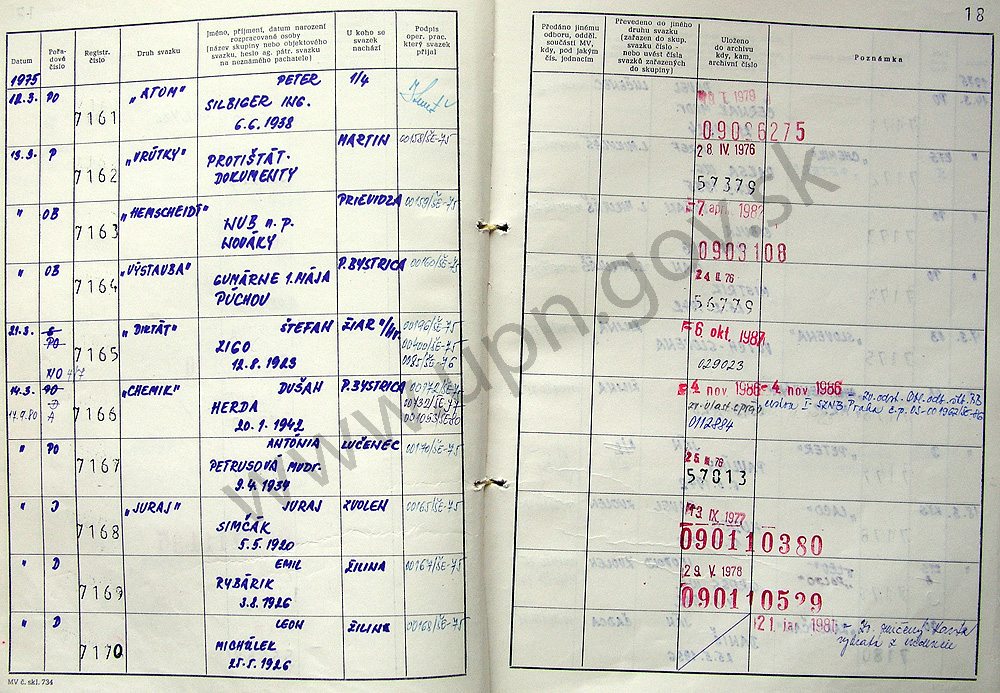 18
Datum
Pořa-
dové
číslo
Registr.
číslo
Druh svazku
Jméno, příjmení, datum narození
rozpracované osoby
[název skupiny nebo objektového
svazku, heslo ag. pátr. svazku
na neznámého pachatele)
U koho se
svazek
nachází
Podpis
oper. prac.
který svazek
přijal
Předáno jinému
odboru, odděl.
součásti MV,
kdy, pod jakým
čís. jednacím
Převedeno do jiného
druhu svazku
(zařazen do skup.
svazku číslo -
nebo uvést čísla
svazků zařazených
do skupiny)
Uloženo
do archivu
kdy, kam,
archivní číslo
Poznámka
1975
12.3. PO 7161 „ATOM" PETER 1/4
SILBIGER ING.
6.6.1938
1979
09006275
13.3. P 7162 „VRÚTKY" PROTIŠTÁT. MARTIN 00158/ŠE-75
DOKUMENTY
28 IV. 1976
57379
" OB 7163 „HEMSCHEIDT" PRIEVIDZA 00159/ŠE-75
WUB n.p.
NOVÁKY
7. apr. 1983
0903108
" OB 7164 „VÝSTAVBA" P.BYSTRICA 00160/ŠE-75
GUMÁRNE 1. MÁJA
PÚCHOV
24 II. 76
56779
21.3. PO 7165 „DIKTÁT" ŠTEFAN ŽIAR n/Hr. 00196/ŠE-75
ZIGO 00400/ŠE-75
12.8.1923
-6. okt. 1987
029023
14.3. PO 7166 „CHEMIK" DUŠAN P.BYSTRICA 00172/ŠE
17.9.80 A HERDA
20.1.1942
-4 nov 1986 -4 nov 1986
0112884
" PO 7167 ANTÓNIA LUČENEC 00170/ŠE-75
PETRUSOVÁ MUDr.
9.4.1934
57013
" D 7168 „JURAJ" JURAJ ZVOLEN 00165/ŠE-75
SIMČÁK
5.5.1920
13. IX. 1977
090110380
" D 7169 EMIL ŽILINA 00167/ŠE-75
RYBÁRIK
3.8.1926
29. V. 1978
090110529
" D 7170 LEON ŽILINA 00168/ŠE-75
MICHÁLEK
25.5.1926
21. jan. 1981
MV č. skl. 734
www.upn.gov.sk